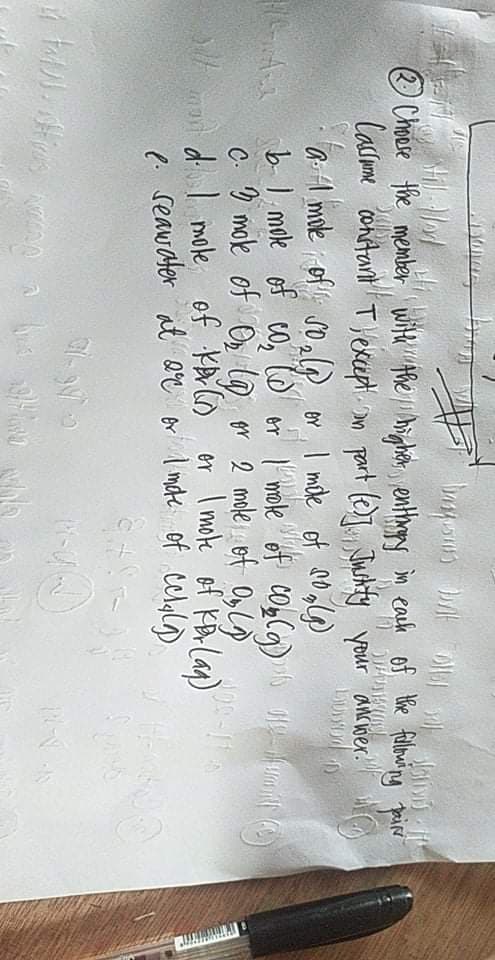 ② Choose the member with the higher enthropy in each of the following pair
(assume constant T, except in part (e)]. Justify your answer.
a. 1 mole of SO2(g) or 1 mole of SO3(g)
b. 1 mole of CO2(s) or 1 mole of CO2(g)
c. 3 mole of O2(g) or 2 mole of O3(g)
d. 1 mole of KBr(s) or 1 mole of KBr(aq)
e. seawater at or 1 mole of CCl4(g)